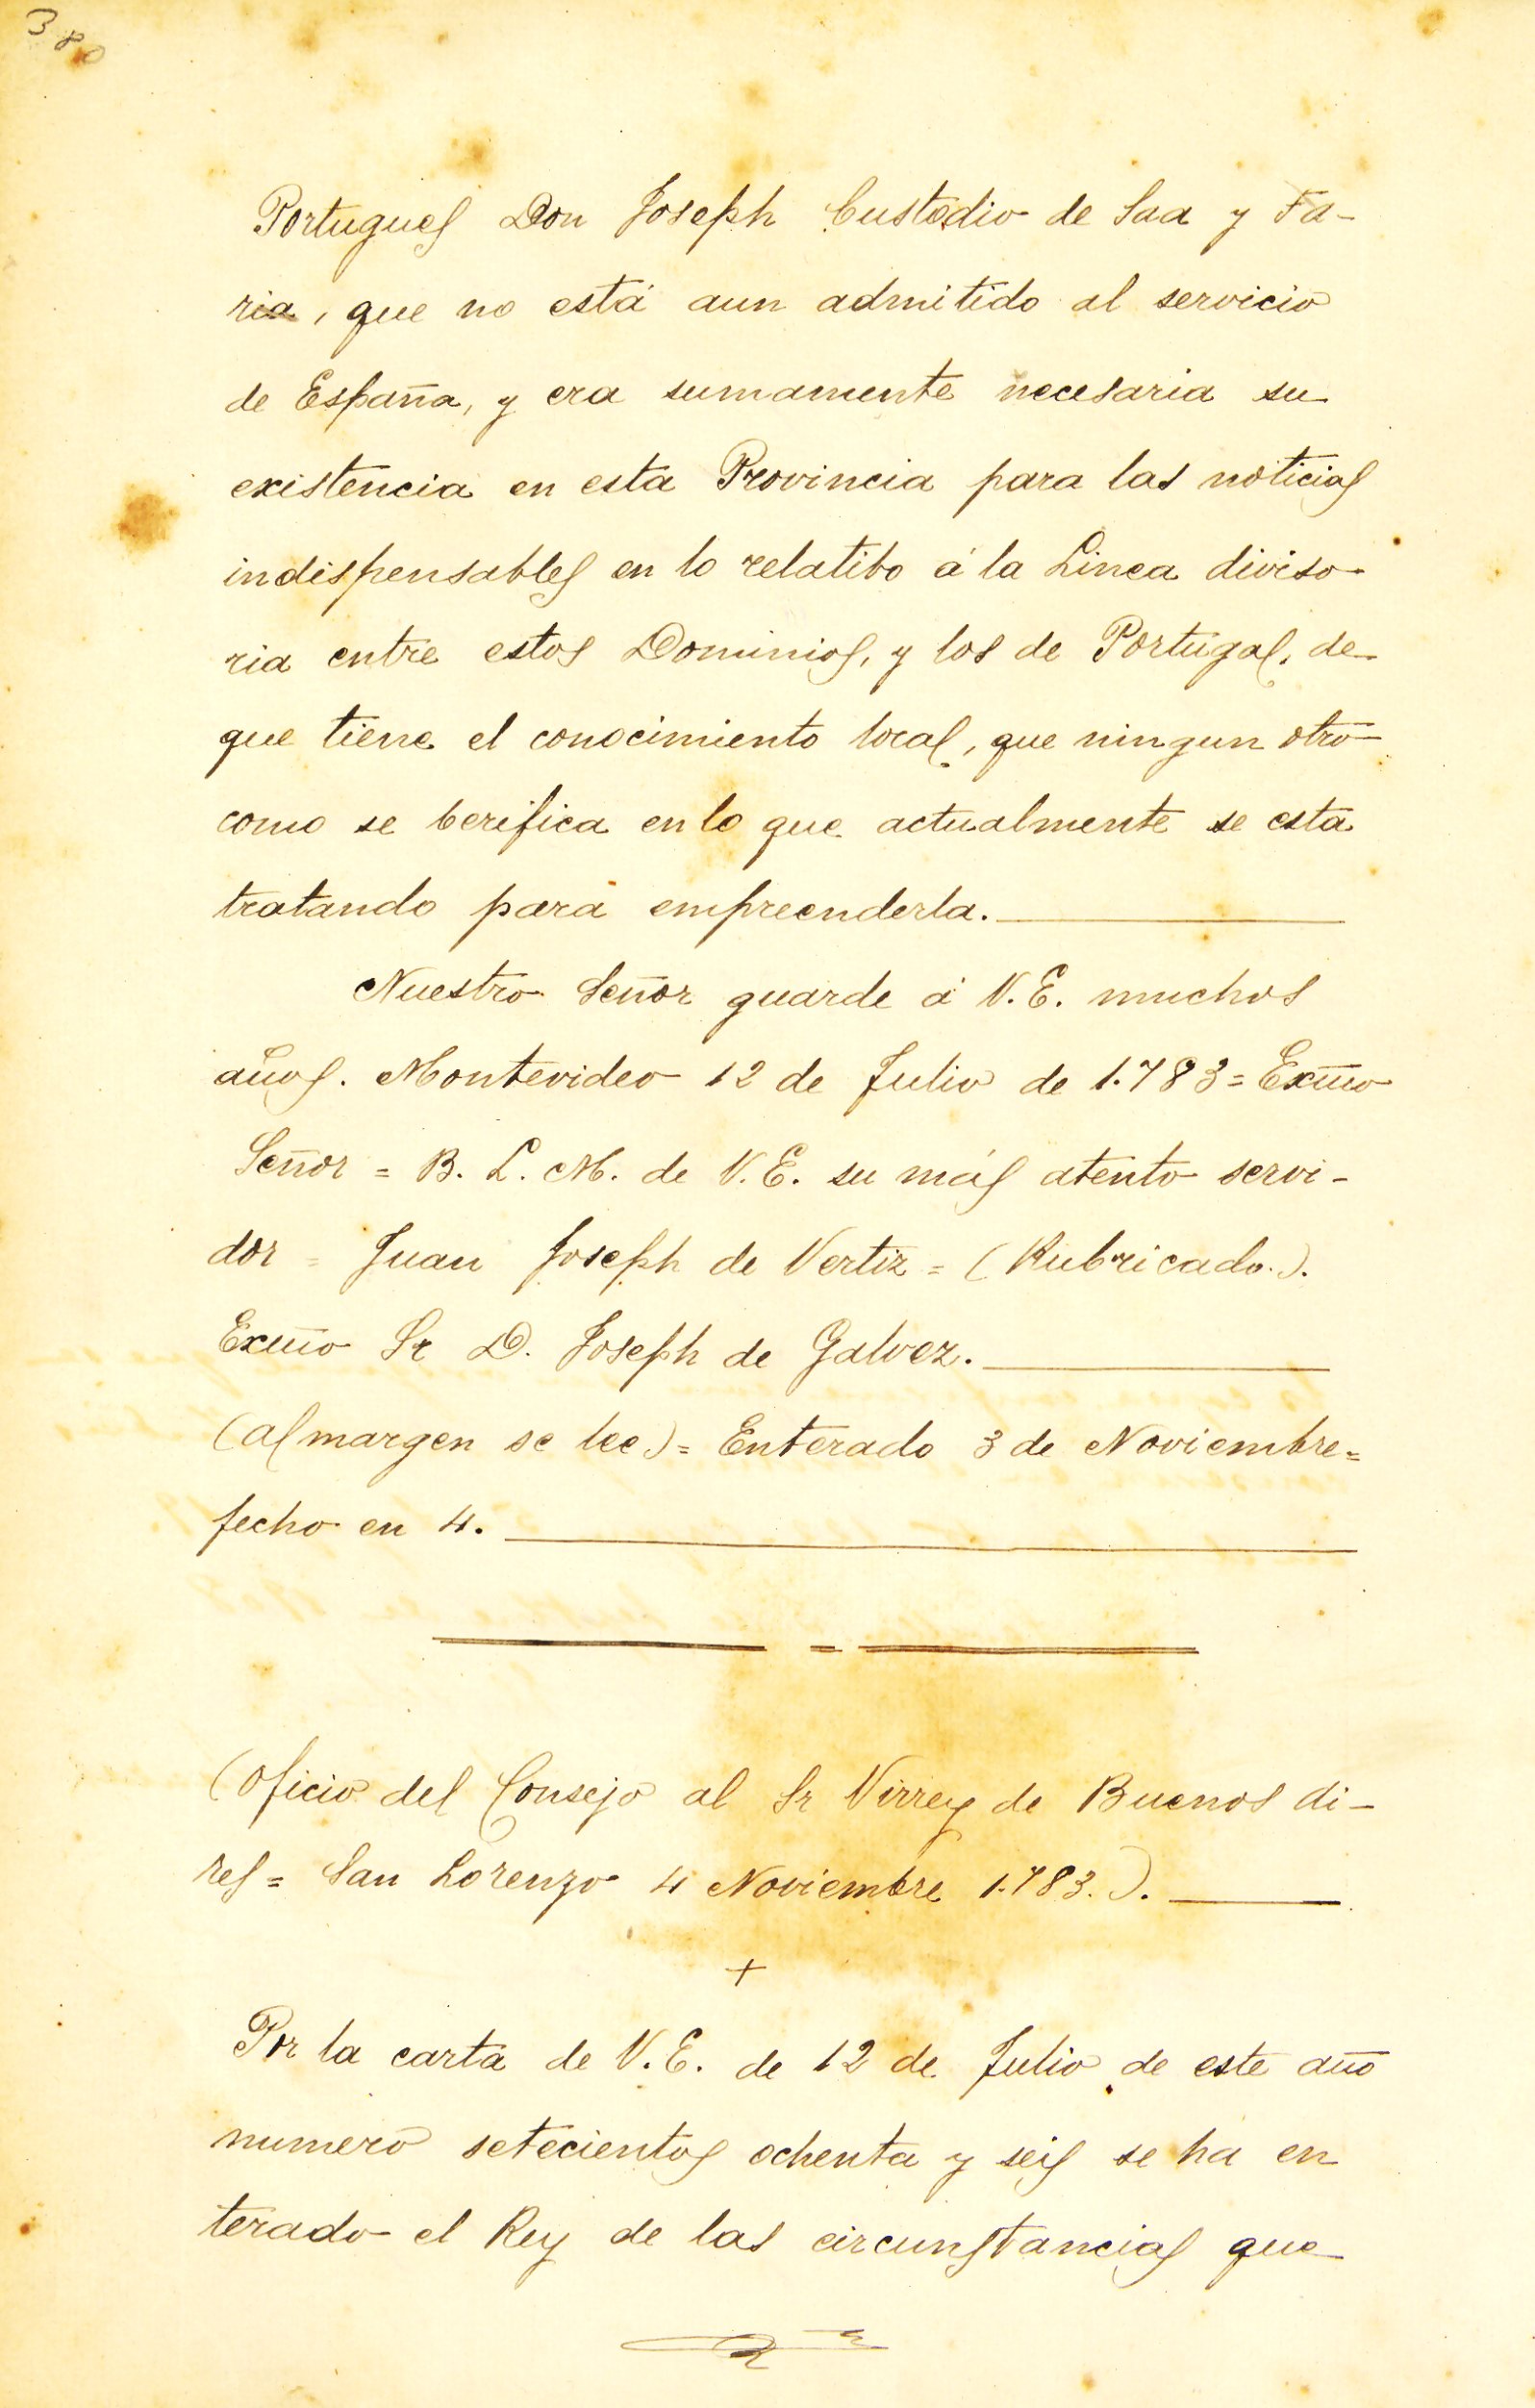 380
Portugues Don Joseph Custodio de Saa y Fa-
ria, que no está aun admitido al servicio
de España, y era sumamente necesaria su
existencia en esta Provincia para las noticias
indispensables en lo relatibo á la Linea diviso-
ria entre estos Dominios, y los de Portugal, de
que tiene el conocimiento local, que ningun otro
como se berifica en lo que actualmente se esta
tratando para empreenderla.
Nuestro Señor guarde á V.E. muchos
años. Montevideo 12 de Julio de 1.783= Exmo
Señor = B. L. M. de V.E. su más atento servi-
dor = Juan Joseph de Vertiz = (Rubricado.).
Exmo Sr D. Joseph de Galvez.
(al margen se lee)= Enterado 3 de Noviembre=
fecho en 4.
(Oficio del Consejo al Sr Virrey de Buenos Ai-
res= San Lorenzo 4 Noviembre 1.783.).
+
Por la carta de V.E. de 12 de Julio de este año
numero setecientos ochenta y seis se ha en
terado el Rey de las circunstancias que